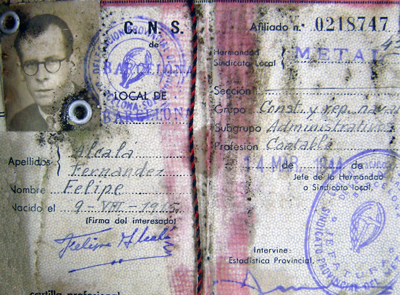 C. N. S.
de
BARCELONA
LOCAL DE
BARCELONA
Apellidos
Alcala
Fernandez
Nombre Felipe
Nacido el 9-VIII-1915
(Firma del interesado)
Felipe Alcala
Afiliado n.º 0218747
Hermandad
Sindicato Local
METAL
Sección
Grupo Const. y rep. naval
Subgrupo Administrativos
Profesión Contable
14 MAR. 1944
de de
Jefe de la Hermandad
o Sindicato local,
Intervine:
Estadística Provincial,